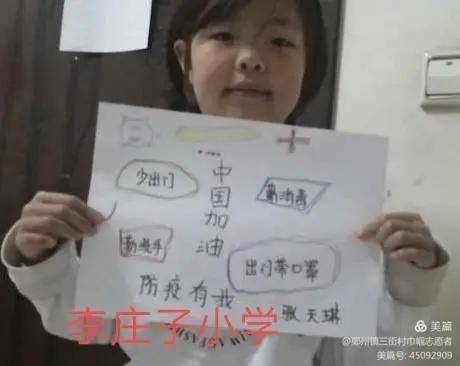 少出门
勤消毒
中国加油
勤洗手
出门带口罩
防疫有我
张天琪
李庄子小学
美篇
@鄚州镇三街村巾帼志愿者
美篇号: 45092909